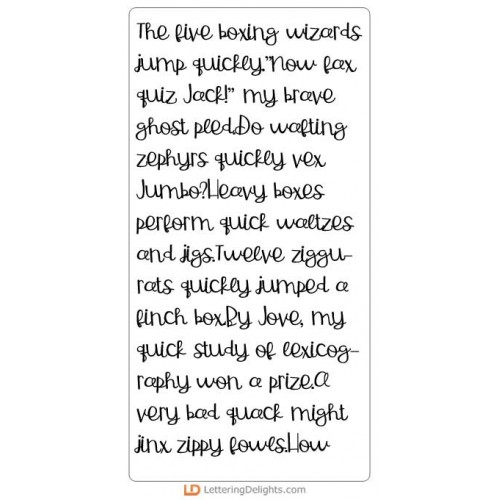 The five boxing wizards
jump quickly."Now fax
quiz Jack!" my brave
ghost pled.Do wafting
zephyrs quickly vex
Jumbo?Heavy boxes
perform quick waltzes
and jigs.Twelve ziggu-
rats quickly jumped a
finch box.By Jove, my
quick study of lexicog-
raphy won a prize.A
very bad quack might
jinx zippy fowls.How
LD LetteringDelights.com